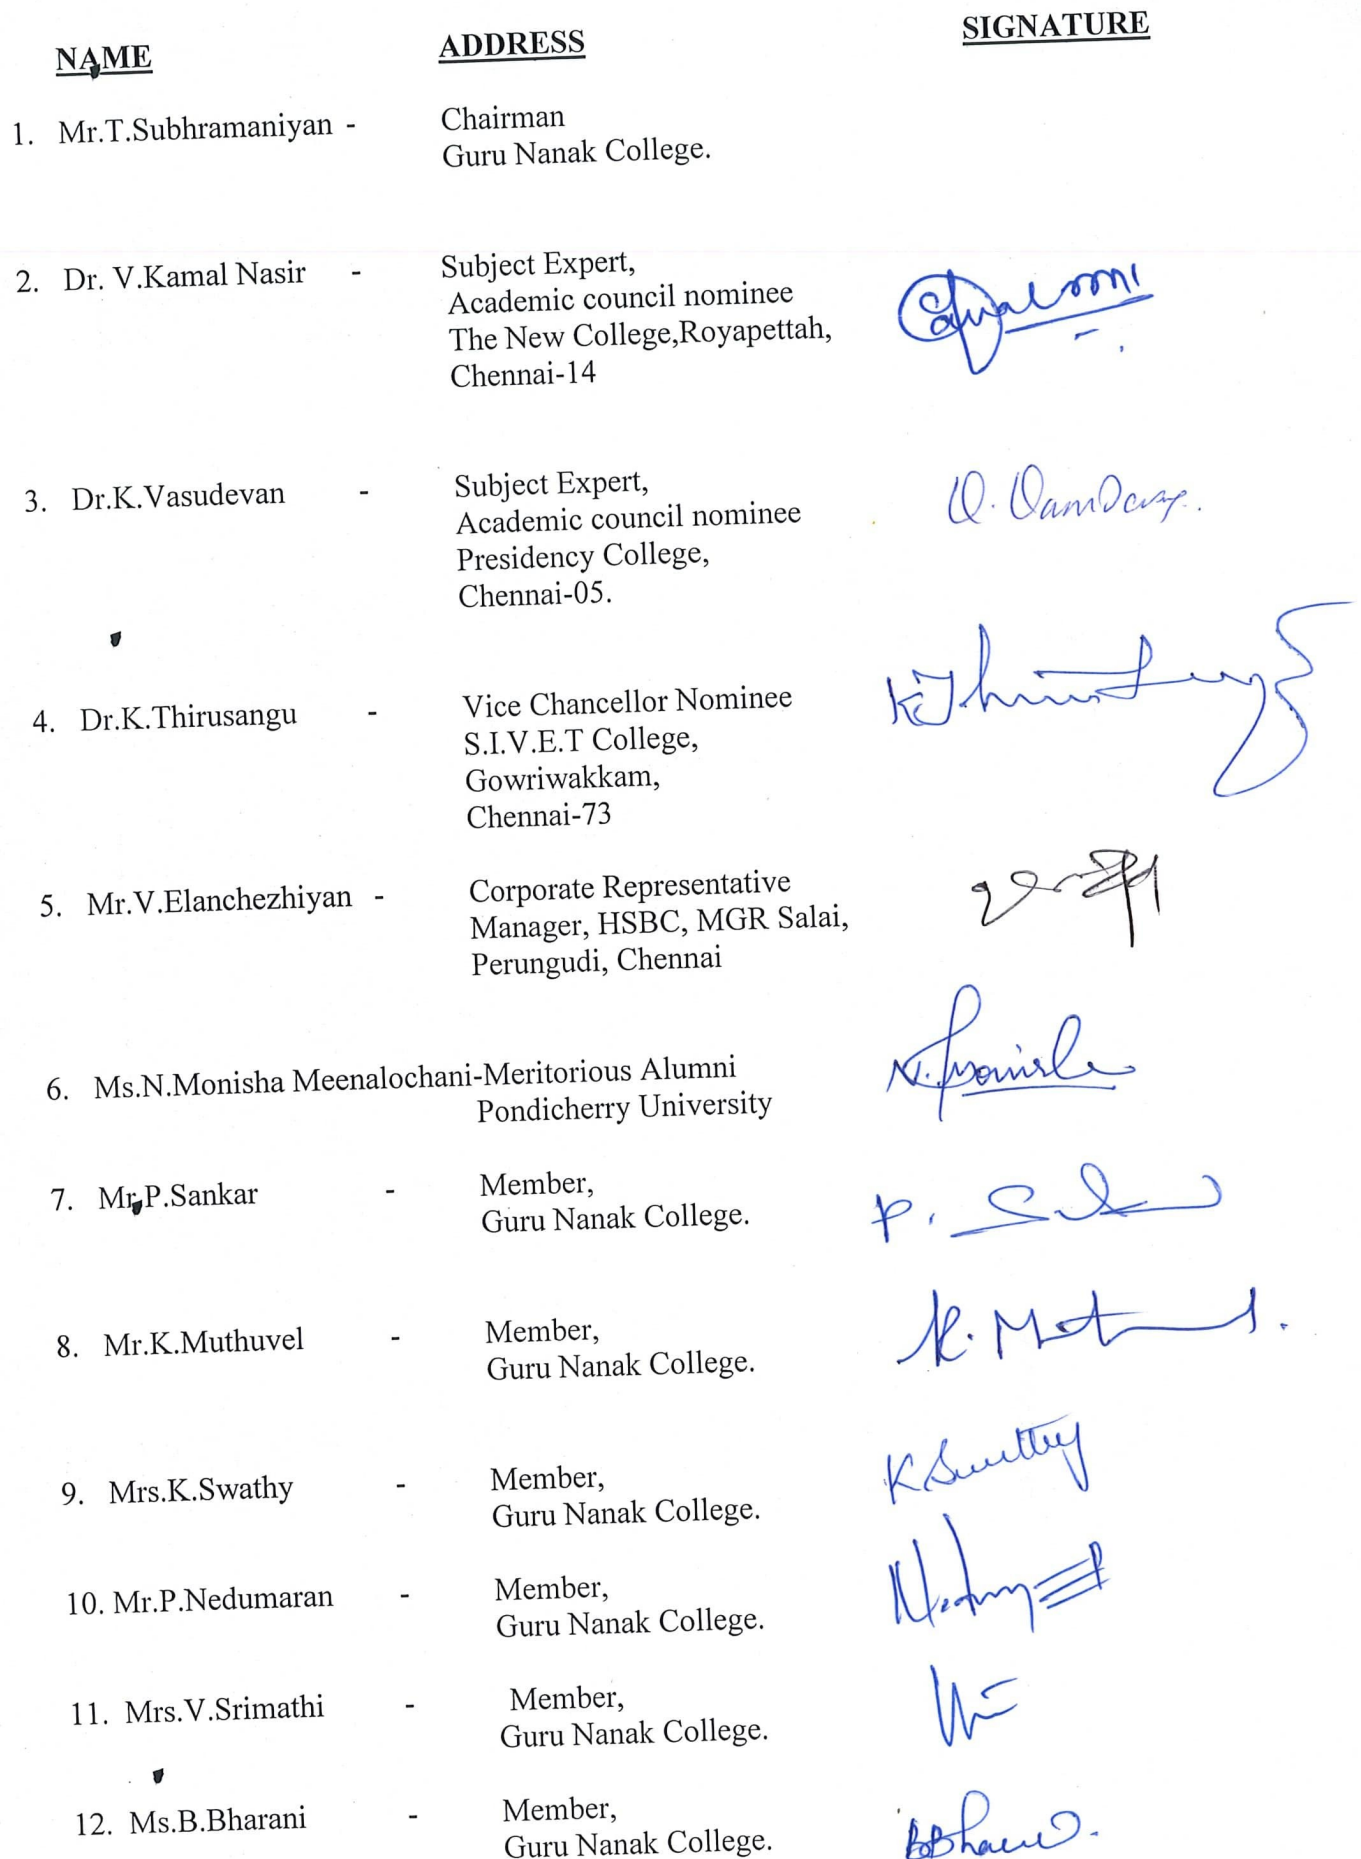 NAME ADDRESS SIGNATURE
1. Mr.T.Subhramaniyan - Chairman
Guru Nanak College.
2. Dr. V.Kamal Nasir - Subject Expert,
Academic council nominee
The New College,Royapettah,
Chennai-14
3. Dr.K.Vasudevan - Subject Expert,
Academic council nominee
Presidency College,
Chennai-05.
4. Dr.K.Thirusangu - Vice Chancellor Nominee
S.I.V.E.T College,
Gowriwakkam,
Chennai-73
5. Mr.V.Elanchezhiyan - Corporate Representative
Manager, HSBC, MGR Salai,
Perungudi, Chennai
6. Ms.N.Monisha Meenalochani-Meritorious Alumni
Pondicherry University
7. Mr.P.Sankar - Member,
Guru Nanak College.
P.
8. Mr.K.Muthuvel - Member,
Guru Nanak College.
K.
9. Mrs.K.Swathy - Member,
Guru Nanak College.
10. Mr.P.Nedumaran - Member,
Guru Nanak College.
11. Mrs.V.Srimathi - Member,
Guru Nanak College.
12. Ms.B.Bharani - Member,
Guru Nanak College.